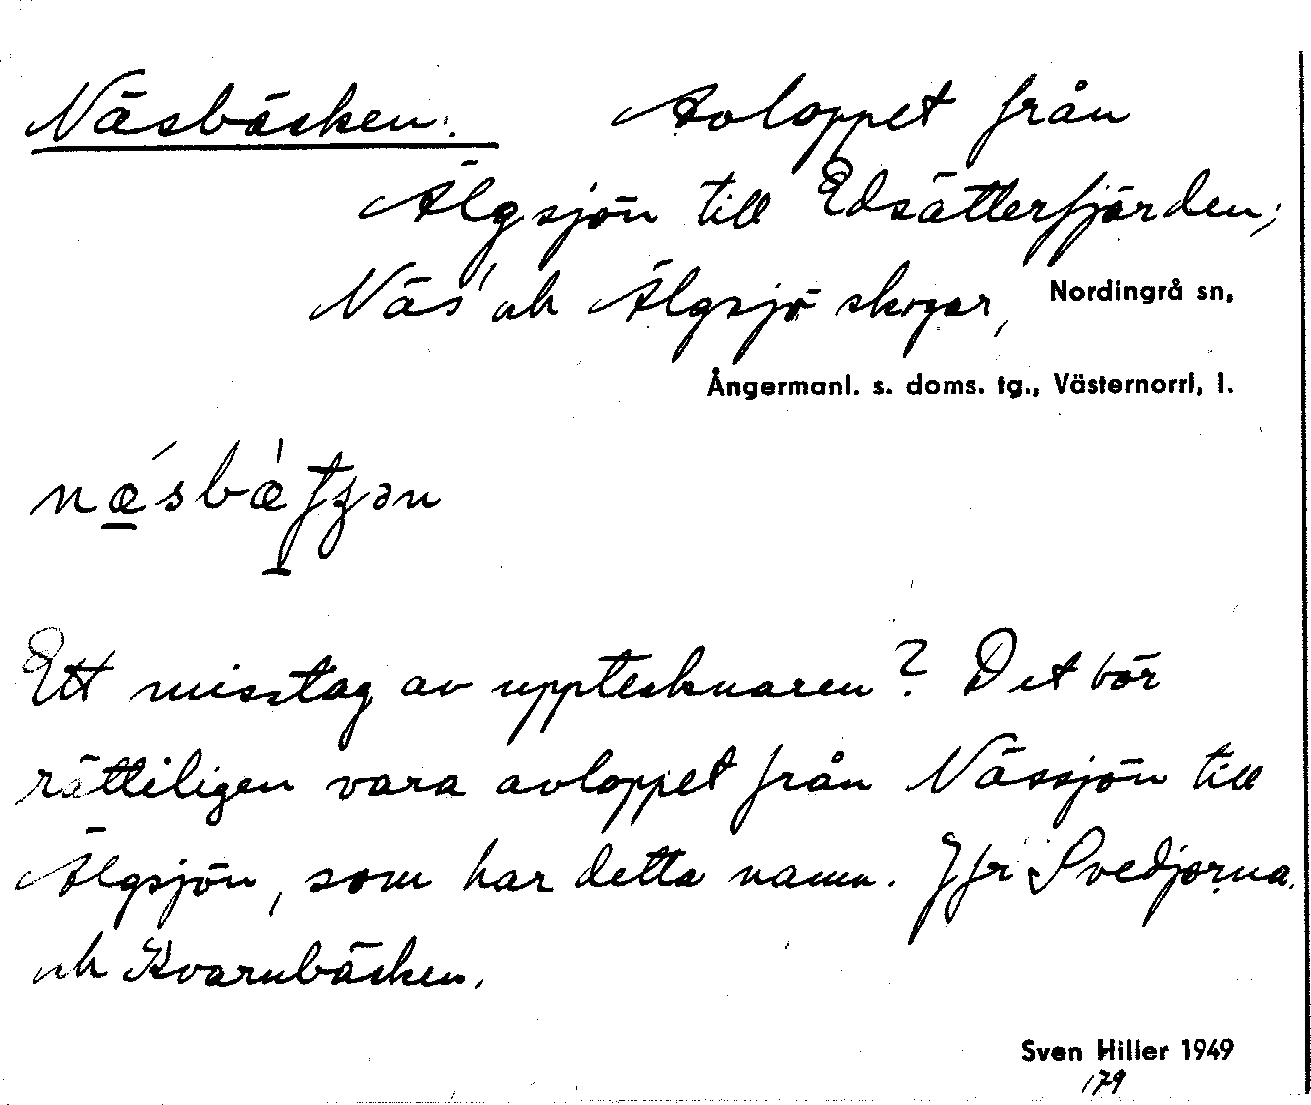 Näsbäcken. Avloppet från
Älgsjön till Edsätterfjärden;
Näs' och Älgsjö skogar, Nordingrå sn,
Ångermanl. s. doms. tg., Västernorrl, l.
Ett misstag av upptecknaren? Det bör
rätteligen vara avloppet från Nässjön till
Älgsjön, som har detta namn. Jfr Svedjorna
och Kvarnbäcken.
Sven Hiller 1949
179